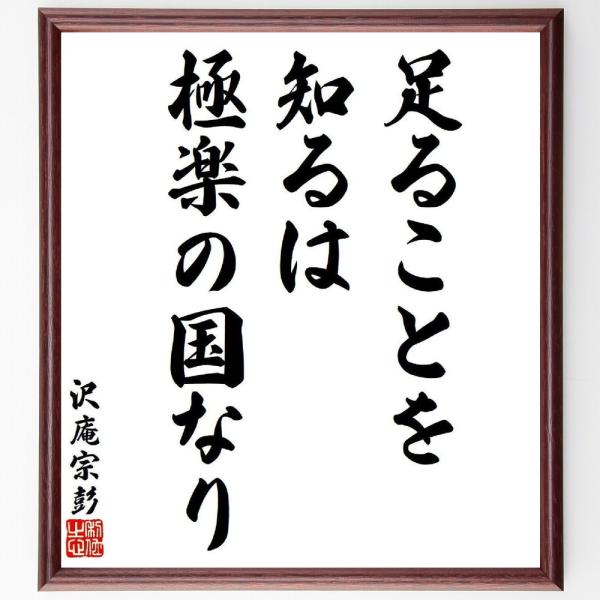 足ることを
知るは
極楽の国なり
沢庵宗彭